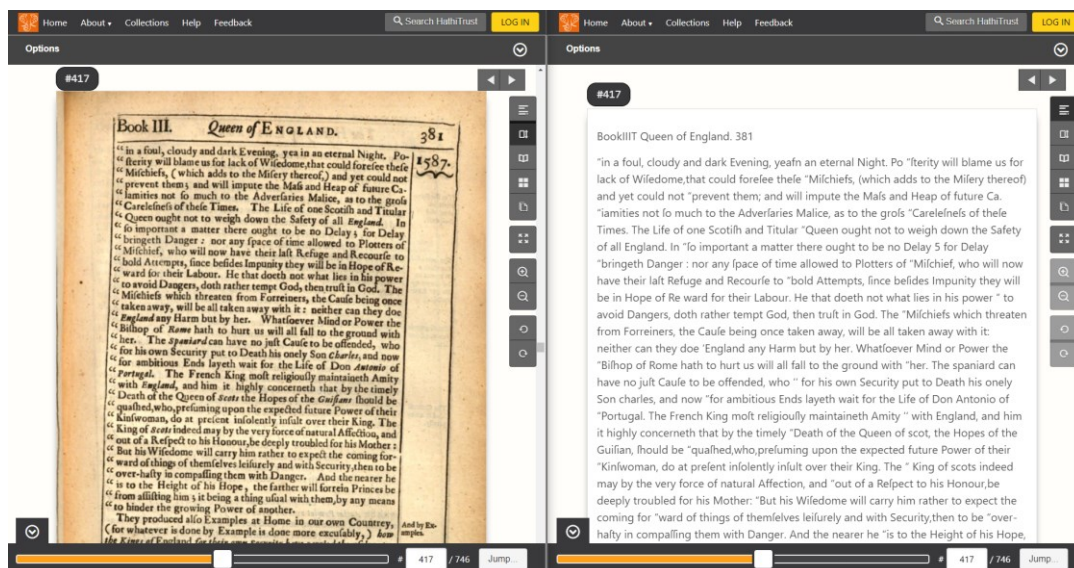 Home About Collections Help Feedback Search HathiTrust LOG IN
Options
#417
Book III. Queen of ENGLAND. 381
1587.
“ in a foul, cloudy and dark Evening, yea in an eternal Night. Po-
“ ſterity will blame us for lack of Wiſedome,that could foreſee theſe
“ Miſchiefs, (which adds to the Miſery thereof,) and yet could not
“ prevent them; and will impute the Maſs and Heap of future Ca-
“ lamities not ſo much to the Adverſaries Malice, as to the groſs
“ Careleſneſs of theſe Times. The Life of one Scotiſh and Titular
“ Queen ought not to weigh down the Safety of all England. In
“ ſo important a matter there ought to be no Delay; for Delay
“ bringeth Danger: nor any ſpace of time allowed to Plotters of
“ Miſchief, who will now have their laſt Refuge and Recourſe to
“ bold Attempts, ſince beſides Impunity they will be in Hope of Re-
“ ward for their Labour. He that doeth not what lies in his power
“ to avoid Dangers, doth rather tempt God, then truſt in God. The
“ Miſchiefs which threaten from Forreiners, the Cauſe being once
“ taken away, will be all taken away with it: neither can they doe
“ England any Harm but by her. Whatſoever Mind or Power the
“ Biſhop of Rome hath to hurt us will all fall to the ground with
“ her. The Spaniard can have no juſt Cauſe to be offended, who
“ for his own Security put to Death his onely Son Charles, and now
“ for ambitious Ends layeth wait for the Life of Don Antonio of
“ Portugal. The French King moſt religiouſly maintaineth Amity
“ with England, and him it highly concerneth that by the timely
“ Death of the Queen of Scots the Hopes of the Guiſians ſhould be
“ quaſhed,who,preſuming upon the expected future Power of their
“ Kinſwoman, do at preſent inſolently inſult over their King. The
“ King of Scots indeed may by the very force of natural Affection, and
“ out of a Reſpect to his Honour,be deeply troubled for his Mother:
“ But his Wiſedome will carry him rather to expect the coming for-
“ ward of things of themſelves leiſurely and with Security,then to be
“ over-haſty in compaſſing them with Danger. And the nearer he
“ is to the Height of his Hope, the farther will forrein Princes be
“ from aſſiſting him; it being a thing uſual with them,by any means
“ to hinder the growing Power of another.
They produced alſo Examples at Home in our own Countrey,
(for whatever is done by Example is done more excuſably,) how
And by Ex-
amples.
the Kings of England for their own
# 417 / 746 Jump...
Home About Collections Help Feedback Search HathiTrust LOG IN
Options
#417
BookIIIT Queen of England. 381
“in a foul, cloudy and dark Evening, yeafn an eternal Night. Po “ſterity will blame us for
lack of Wiſedome,that could foreſee theſe “Miſchiefs, (which adds to the Miſery thereof)
and yet could not “prevent them; and will impute the Maſs and Heap of future Ca.
“iamities not ſo much to the Adverſaries Malice, as to the groſs “Careleſneſs of theſe
Times. The Life of one Scotiſh and Titular “Queen ought not to weigh down the Safety
of all England. In “ſo important a matter there ought to be no Delay 5 for Delay
“bringeth Danger : nor any ſpace of time allowed to Plotters of “Miſchief, who will now
have their laſt Refuge and Recourſe to “bold Attempts, ſince beſides Impunity they will
be in Hope of Re ward for their Labour. He that doeth not what lies in his power “ to
avoid Dangers, doth rather tempt God, then truſt in God. The “Miſchiefs which threaten
from Forreiners, the Cauſe being once taken away, will be all taken away with it:
neither can they doe ‘England any Harm but by her. Whatſoever Mind or Power the
“Biſhop of Rome hath to hurt us will all fall to the ground with “her. The spaniard can
have no juſt Cauſe to be offended, who '' for his own Security put to Death his onely
Son charles, and now “for ambitious Ends layeth wait for the Life of Don Antonio of
“Portugal. The French King moſt religiouſly maintaineth Amity '' with England, and him
it highly concerneth that by the timely “Death of the Queen of scot, the Hopes of the
Guiſian, ſhould be “quaſhed,who,preſuming upon the expected future Power of their
“Kinſwoman, do at preſent inſolently inſult over their King. The “ King of scots indeed
may by the very force of natural Affection, and “out of a Reſpect to his Honour,be
deeply troubled for his Mother: “But his Wiſedome will carry him rather to expect the
coming for “ward of things of themſelves leiſurely and with Security,then to be “over-
haſty in compaſſing them with Danger. And the nearer he “is to the Height of his Hope,
# 417 / 746 Jump...